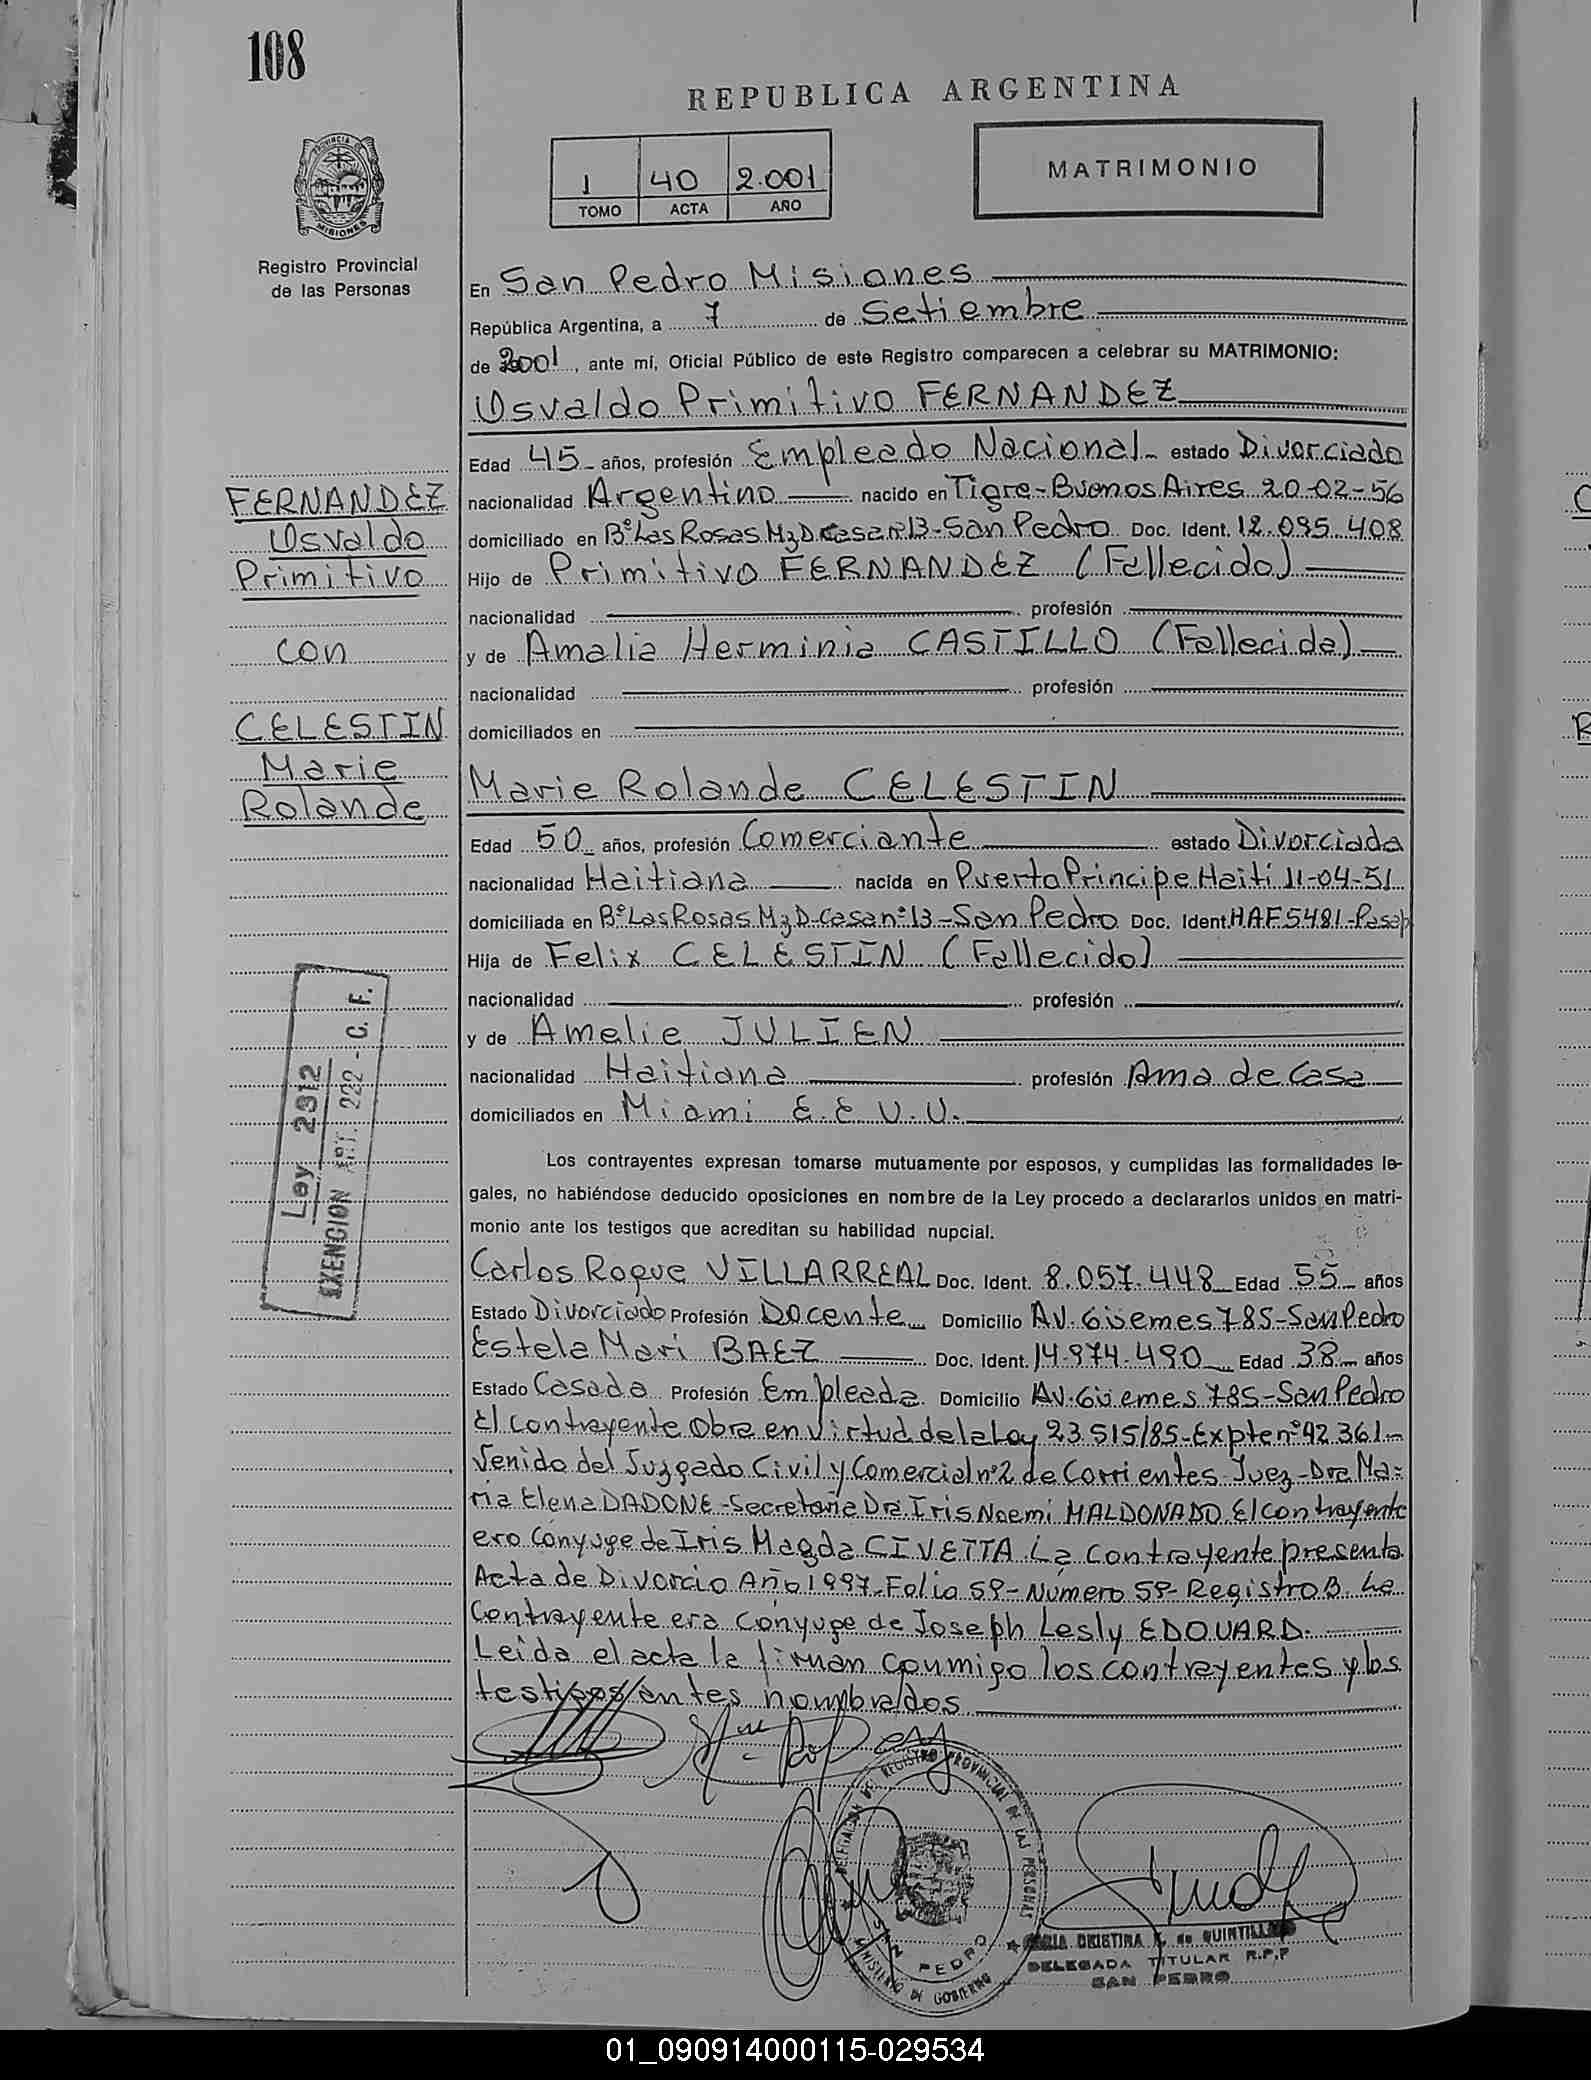 108
REPUBLICA ARGENTINA
1 40 2.001
TOMO ACTA AÑO
MATRIMONIO
PROVINCIA DE MISIONES
Registro Provincial
de las Personas
En San Pedro Misiones
República Argentina, a 7 de Setiembre
de 2001, ante mí, Oficial Público de este Registro comparecen a celebrar su MATRIMONIO:
Osvaldo Primitivo FERNANDEZ
Edad 45 años, profesión Empleado Nacional estado Divorciado
nacionalidad Argentino nacido en Tigre-Buenos Aires 20-02-56
domiciliado en Bº Las Rosas Mz D Casa nº 13-San Pedro Doc. Ident. 12.095.408
Hijo de Primitivo FERNANDEZ (Fallecido)
nacionalidad profesión
y de Amalia Herminia CASTILLO (Fallecida)
nacionalidad profesión
domiciliados en
FERNANDEZ
Osvaldo
Primitivo
con
CELESTIN
Marie
Rolande
Marie Rolande CELESTIN
Edad 50 años, profesión Comerciante estado Divorciada
nacionalidad Haitiana nacida en Puerto Principe Haiti 11-04-51
domiciliada en Bº Las Rosas Mz D-Casa nº 13-San Pedro Doc. Ident. HAF5481-Pasap
Hija de Felix CELESTIN (Fallecido)
nacionalidad profesión
y de Amelie JULIEN
nacionalidad Haitiana profesión Ama de Casa
domiciliados en Miami E.E.U.U.
Ley 2312
EXENCION ART. 222 - C. F.
Los contrayentes expresan tomarse mutuamente por esposos, y cumplidas las formalidades le-
gales, no habiéndose deducido oposiciones en nombre de la Ley procedo a declararlos unidos en matri-
monio ante los testigos que acreditan su habilidad nupcial.
Carlos Roque VILLARREAL Doc. Ident. 8.057.448 Edad 55 años
Estado Divorciado Profesión Docente Domicilio AV. Güemes 785-San Pedro
Estela Mari BAEZ Doc. Ident. 14.974.490 Edad 38 años
Estado Casada Profesión Empleada Domicilio Av. Güemes 785-San Pedro
El contrayente Obra en Virtud de la Ley 23.515/85-Expte nº 42.361-
Venido del Juzgado Civil y Comercial nº2 de Corrientes-Juez-Dra Ma-
ria Elena DADONE-Secretaria Dra. Iris Noemi MALDONADO. El contrayente
era Cónyuge de Iris Magda CIVETTA. La contrayente presenta
Acta de Divorcio Año 1997-Folio 59-Número 59-Registro B. La
Contrayente era cónyuge de Joseph Lesly EDOUARD.
Leida el acta la firman conmigo los contrayentes y los
testigos antes nombrados.
DELEGACION DEL REGISTRO PROVINCIAL DE LAS PERSONAS
SAN PEDRO
MINISTERIO DE GOBIERNO
MARIA CRISTINA de QUINTILLAN
DELEGADA TITULAR R.P.P
SAN PEDRO
01_090914000115-029534